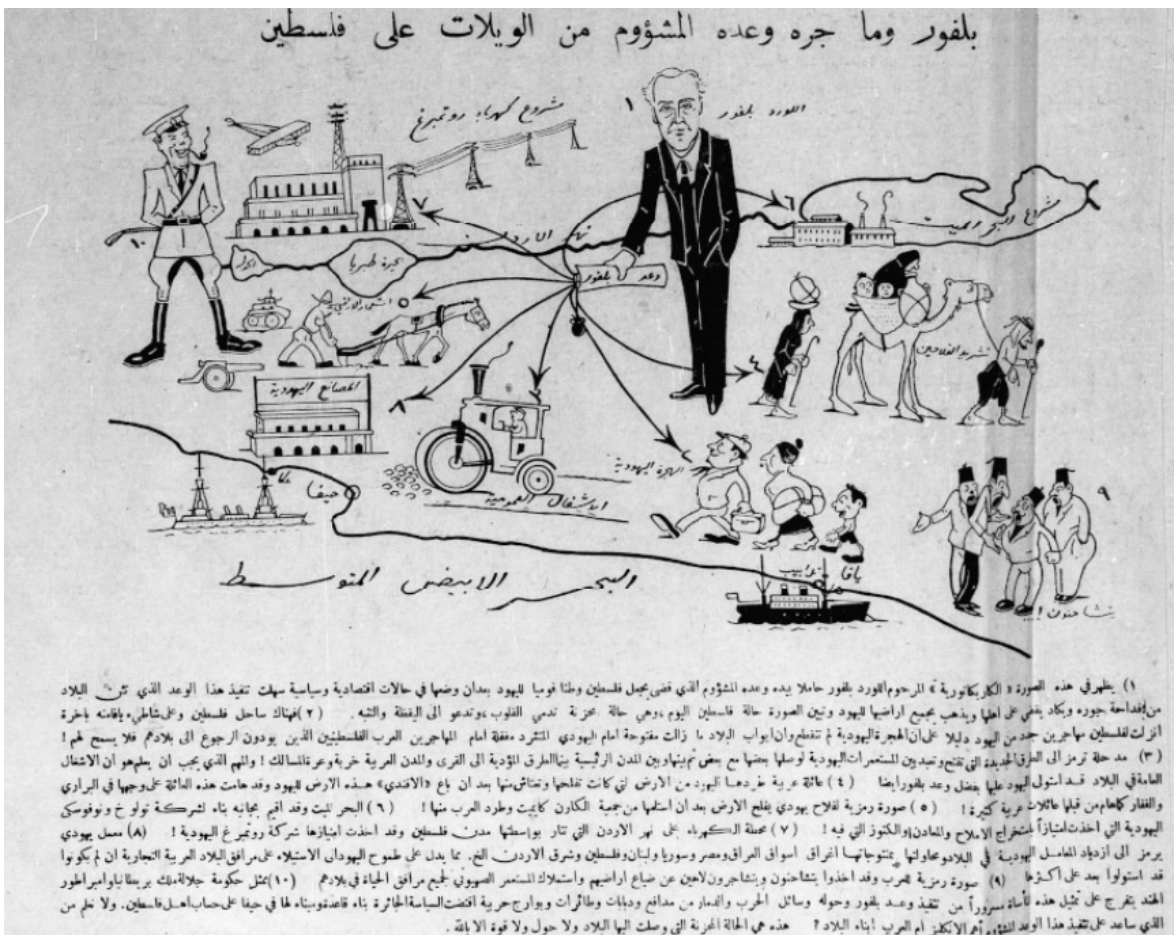 بلفور وما جره وعده المشؤوم من الويلات على فلسطين
مشروع كهرباء روتمبرغ
١
اللورد بلفور
١٠
٧
٦
مشروع البحر الميت
نهر الاردن
الحولة
بحيرة طبريا
وعد بلفور
٥
٤
تشريد الفلاحين
المصانع اليهودية
٨
٣
٢
الهجرة اليهودية
٩
عكا
حيفا
الاشغال العمومية
البحر الابيض المتوسط
يافا
تل ابيب
يتشاحنون !
١) يظهر في هذه الصورة «الكاريكاتورية» المرحوم اللورد بلفور حاملا بيده وعده المشؤوم الذي قضى بجعل فلسطين وطنا قوميا لليهود بعد أن وضعها في حالات اقتصادية وسياسية سهلت تنفيذ هذا الوعد الذي تئن البلاد
من فداحة جوره ويكاد يقضي على اهلها ويذهب بجميع اراضيها لليهود وتبين الصورة حالة فلسطين اليوم، وهي حالة محزنة تدمي القلوب، وتدعو الى اليقظة والتنبه. (٢) فهناك ساحل فلسطين وعلى شاطىء يافا منه باخرة
انزلت لفلسطين مهاجرين جدد من اليهود دليلا على أن الهجرة اليهودية لم تنقطع وان ابواب البلاد ما زالت مفتوحة امام اليهودي المتشرد مقفلة امام المهاجرين العرب الفلسطينيين الذين يودون الرجوع الى بلادهم فلا يسمح لهم !
(٣) مدحلة ترمز الى الطرق الجديدة التي تفتح وتعبد بين المستعمرات اليهودية لوصلها بعضها مع بعض ثم بينها وبين المدن الرئيسية بينا الطرق المؤدية الى القرى والمدن العربية خربة وعرة المسالك ! والمهم الذي يجب ان يعلم هو أن الاشغال
العامة في البلاد قد استولى اليهود عليها بفضل وعد بلفور ايضا (٤) عائلة عربية طردها اليهود من الأرض التي كانت تفلحها وتعتاش منها بعد ان باع «الافندي» هذه الارض لليهود وقد هامت هذه العائلة على وجهها في البراري
والقفار كما هام من قبلها عائلات عربية كثيرة ! (٥) صورة رمزية لفلاح يهودي يفلح الارض بعد ان استلمها من جمعية الكارن كايمت وطرد العرب منها ! (٦) البحر الميت وقد اقيم بجانبه بناء لشركة نولوخ ونوفومسكى
اليهودية التي اخذت امتيازاً باستخراج الاملاح والمعادن والكنوز التي فيه ! (٧) محطة الكهرباء على نهر الاردن التي تنار بواسطتها مدن فلسطين وقد اخذت امتيازها شركة روتمبرغ اليهودية ! (٨) معمل يهودي
يرمز الى ازدياد المعامل اليهودية في البلاد ومحاولتها بمنتوجاتها اغراق اسواق العراق ومصر وسوريا ولبنان وفلسطين وشرق الاردن الخ. مما يدل على طموح اليهود الى الاستيلاء على مرافق البلاد العربية التجارية ان لم يكونوا
قد استولوا بعد على اكثرها (٩) صورة رمزية للعرب وقد اخذوا يتشاحنون ويتشاجرون لاهين عن ضياع اراضيهم واستملاك المستعمر الصهيوني لجميع مرافق الحياة في بلادهم (١٠) يمثل حكومة جلالة ملك بريطانيا وامبراطور
الهند يتفرج على تمثيل هذه المأساة مسروراً من تنفيذ وعد بلفور وحوله وسائل الحرب والدمار من مدافع ودبابات وطائرات وبوارج حربية اقتضت السياسة الجائرة بناء قاعدة وميناء لها في حيفا على حساب اهل فلسطين. ولا نعلم من
الذي ساعد على تنفيذ هذا الوعد المشؤوم أهم الانكليز ام العرب أبناء البلاد ؟ هذه هي الحالة المحزنة التي وصلت اليها البلاد ولا حول ولا قوة الا بالله.